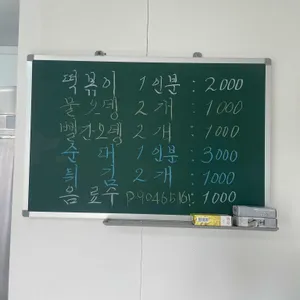 떡볶이 1인분 : 2000
물오뎅 2개 : 1000
빨간오뎅 2개 : 1000
순대 1인분 : 3000
튀김 2개 : 1000
음료수 : 1000